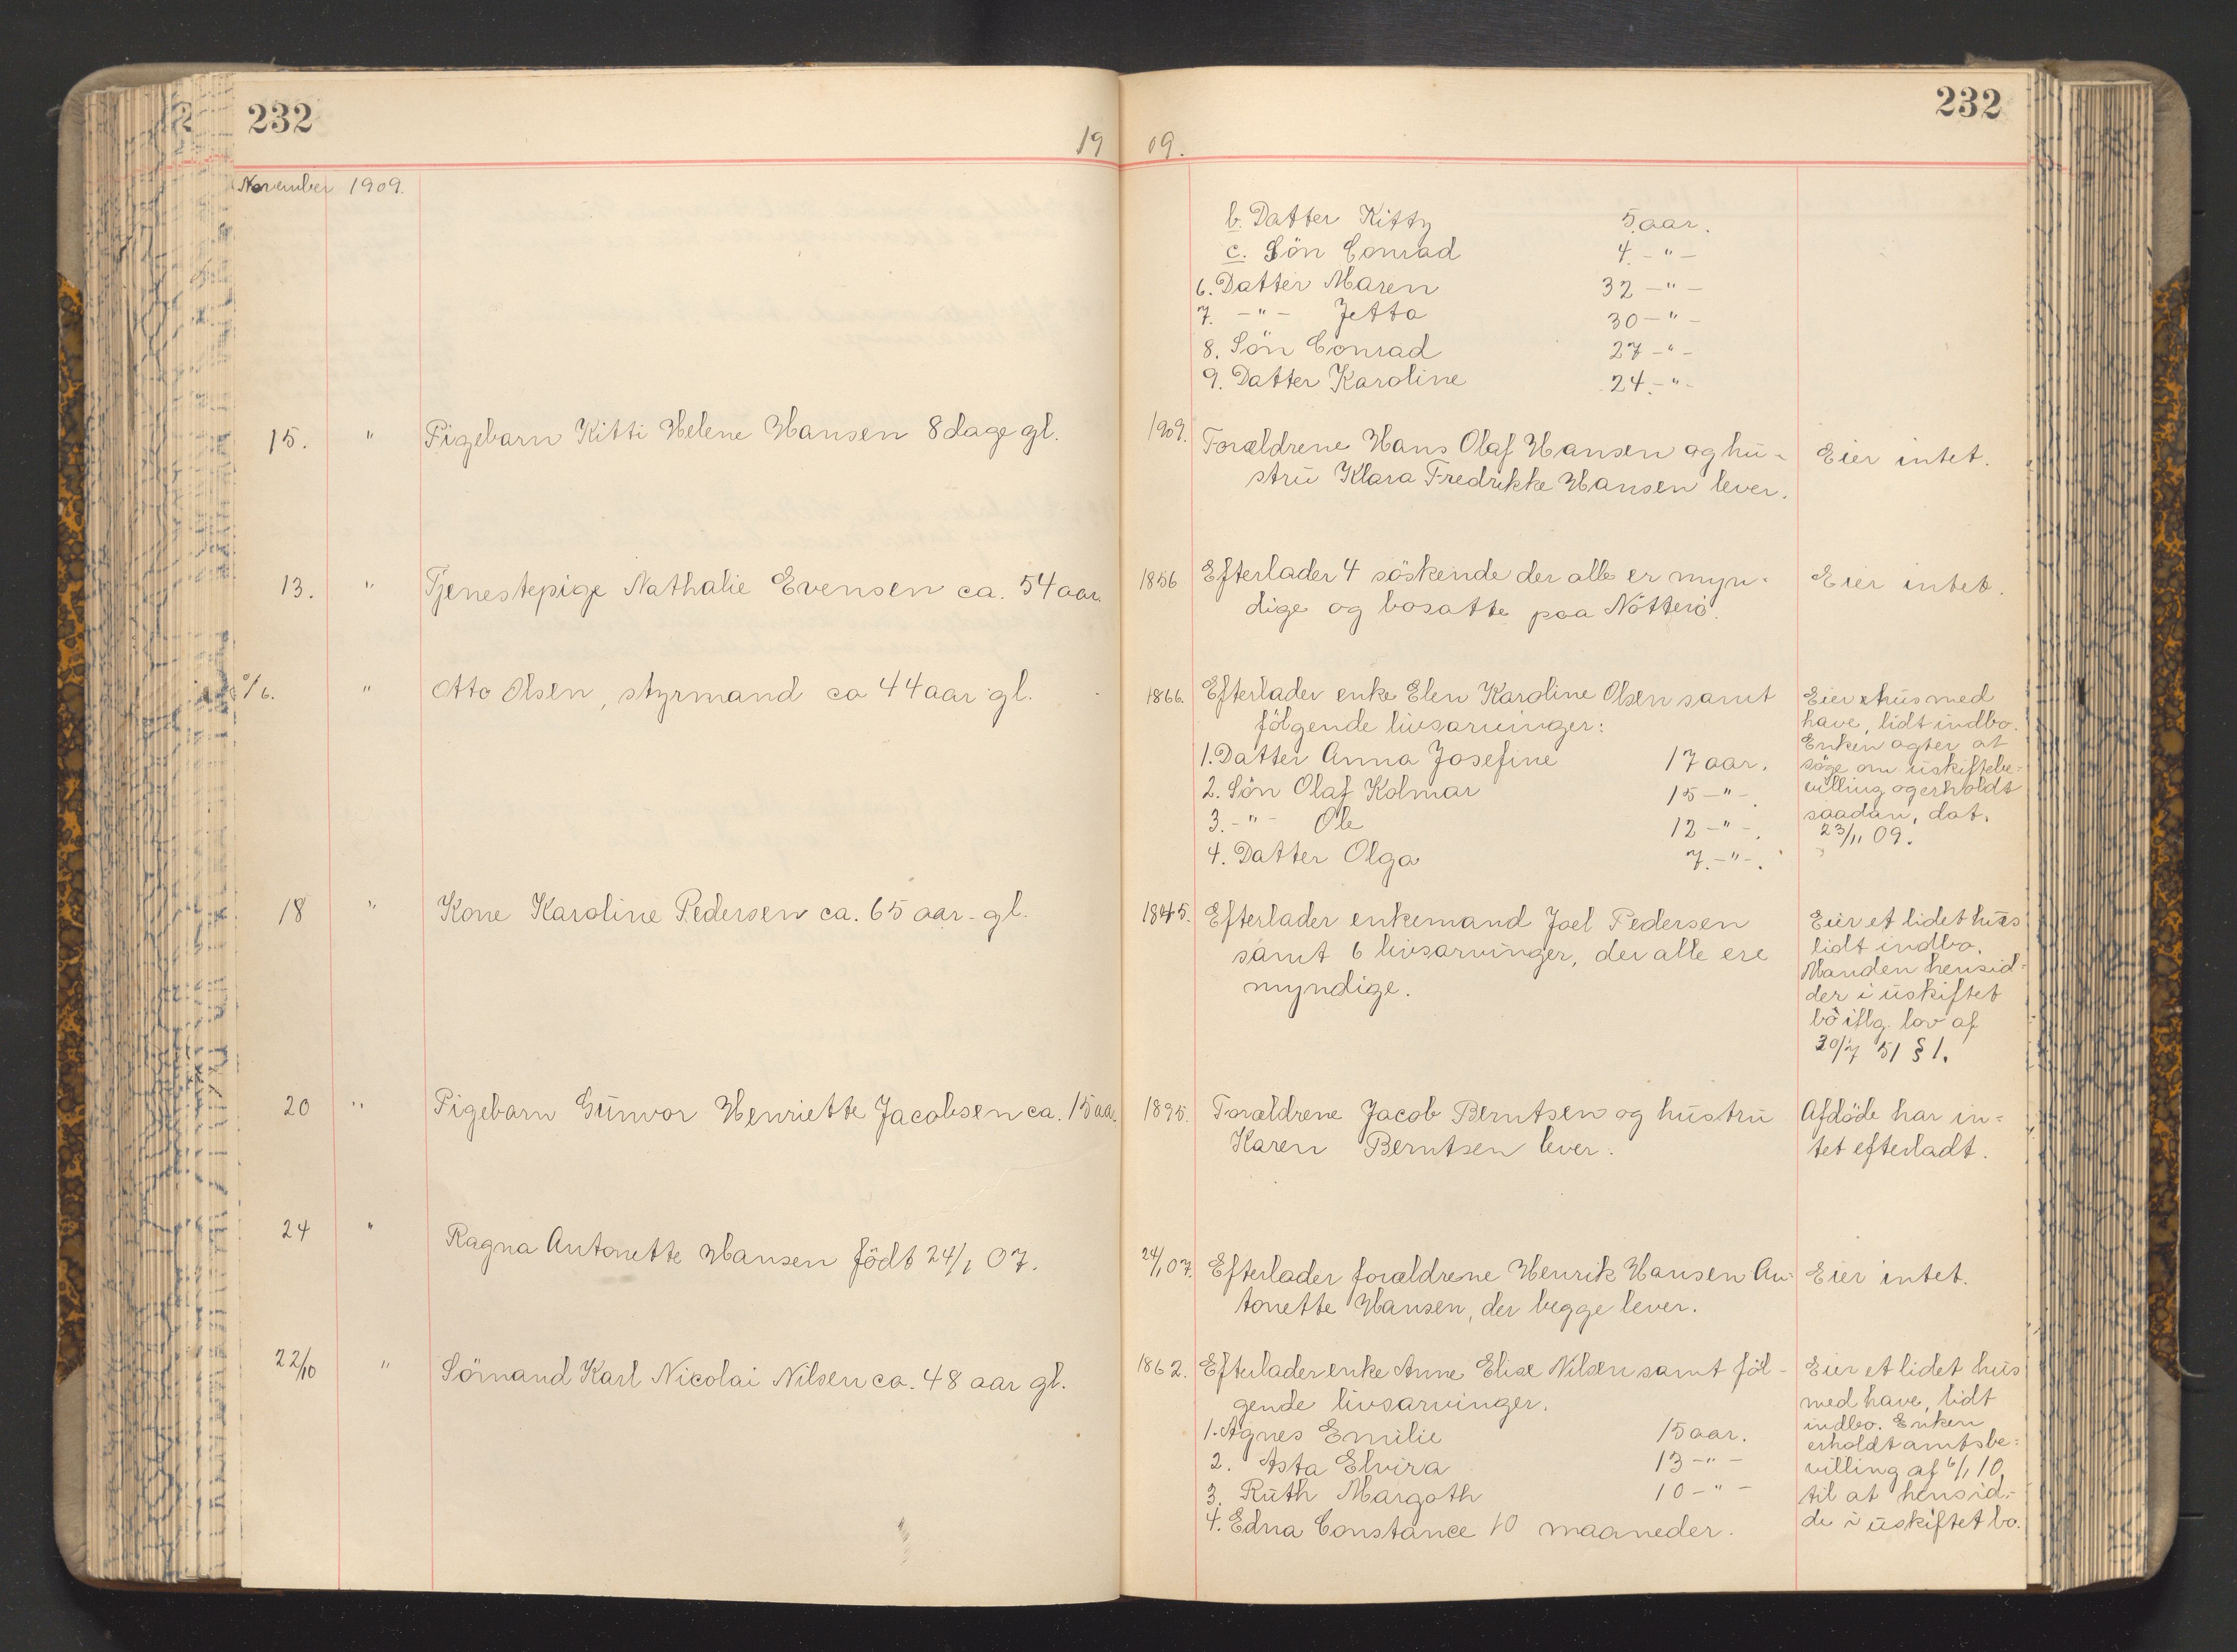 232
19 09.
232
November 1909.
b. Datter Kitty 5 aar.
c. Sön Conrad 4 - " -
6. Datter Maren 32 - " -
7. - " - Jetta 30 - " -
8. Sön Conrad 27 - " -
9. Datter Karoline 24 - " -
15. " Pigebarn Kitti Helene Hansen 8 dage gl. 1909. Forældrene Hans Olaf Hansen og hu- Eier intet.
stru Klara Fredrikke Hansen lever.
13. " Tjenestepige Nathalie Evensen ca. 54 aar. 1856 Efterlader 4 söskende der alle er myn- Eier intet.
dige og bosatte paa Nötterö.
/6. " Otto Olsen, styrmand ca 44 aar gl. 1866. Efterlader enke Elen Karoline Olsen samt Eier et hus med
fölgende livsarvinger: have, lidt indbo.
Enken agter at
1. Datter Anna Josefine 17 aar. söge om uskiftebe-
2. Sön Olaf Kolmar 15 - " -. villing og erholdt
3. - " - Ole 12 - " -. saadan, dat.
23/11 09.
4. Datter Olga 7. - " -.
18 " Kone Karoline Pedersen ca. 65 aar gl. 1845. Efterlader enkemand Joel Pedersen Eier et lidet hus
samt 6 livsarvinger, der alle ere lidt indbo.
myndige. Manden hensid-
der i uskiftet
bo iflg. lov af
30/7 51 § 1.
20 " Pigebarn Gunvor Henriette Jacobsen ca. 15 aar. 1895. Forældrene Jacob Berntsen og hustru Afdöde har in-
Karen Berntsen lever. tet efterladt.
24 " Ragna Antonette Hansen födt 24/1 07. 24/1 07. Efterlader forældrene Henrik Hansen An- Eier intet.
tonette Hansen, der begge lever.
22/10 " Sömand Karl Nicolai Nilsen ca. 48 aar gl. 1862. Efterlader enke Anne Elise Nilsen samt föl- Eier et lidet hus
gende livsarvinger. med have, lidt
1. Agnes Emilie 15 aar. indbo. Enken
erholdt amtsbe-
2. Asta Elvira 13 - " - villing af 6/1 10,
3. Ruth Margoth 10 - " - til at hensid-
4. Edna Constance 10 maaneder. de i uskiftet bo.